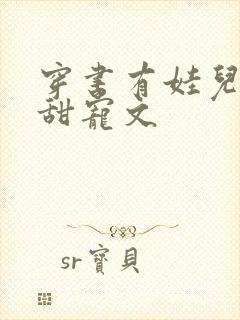 穿書有娃兒
甜寵文
sr寶貝